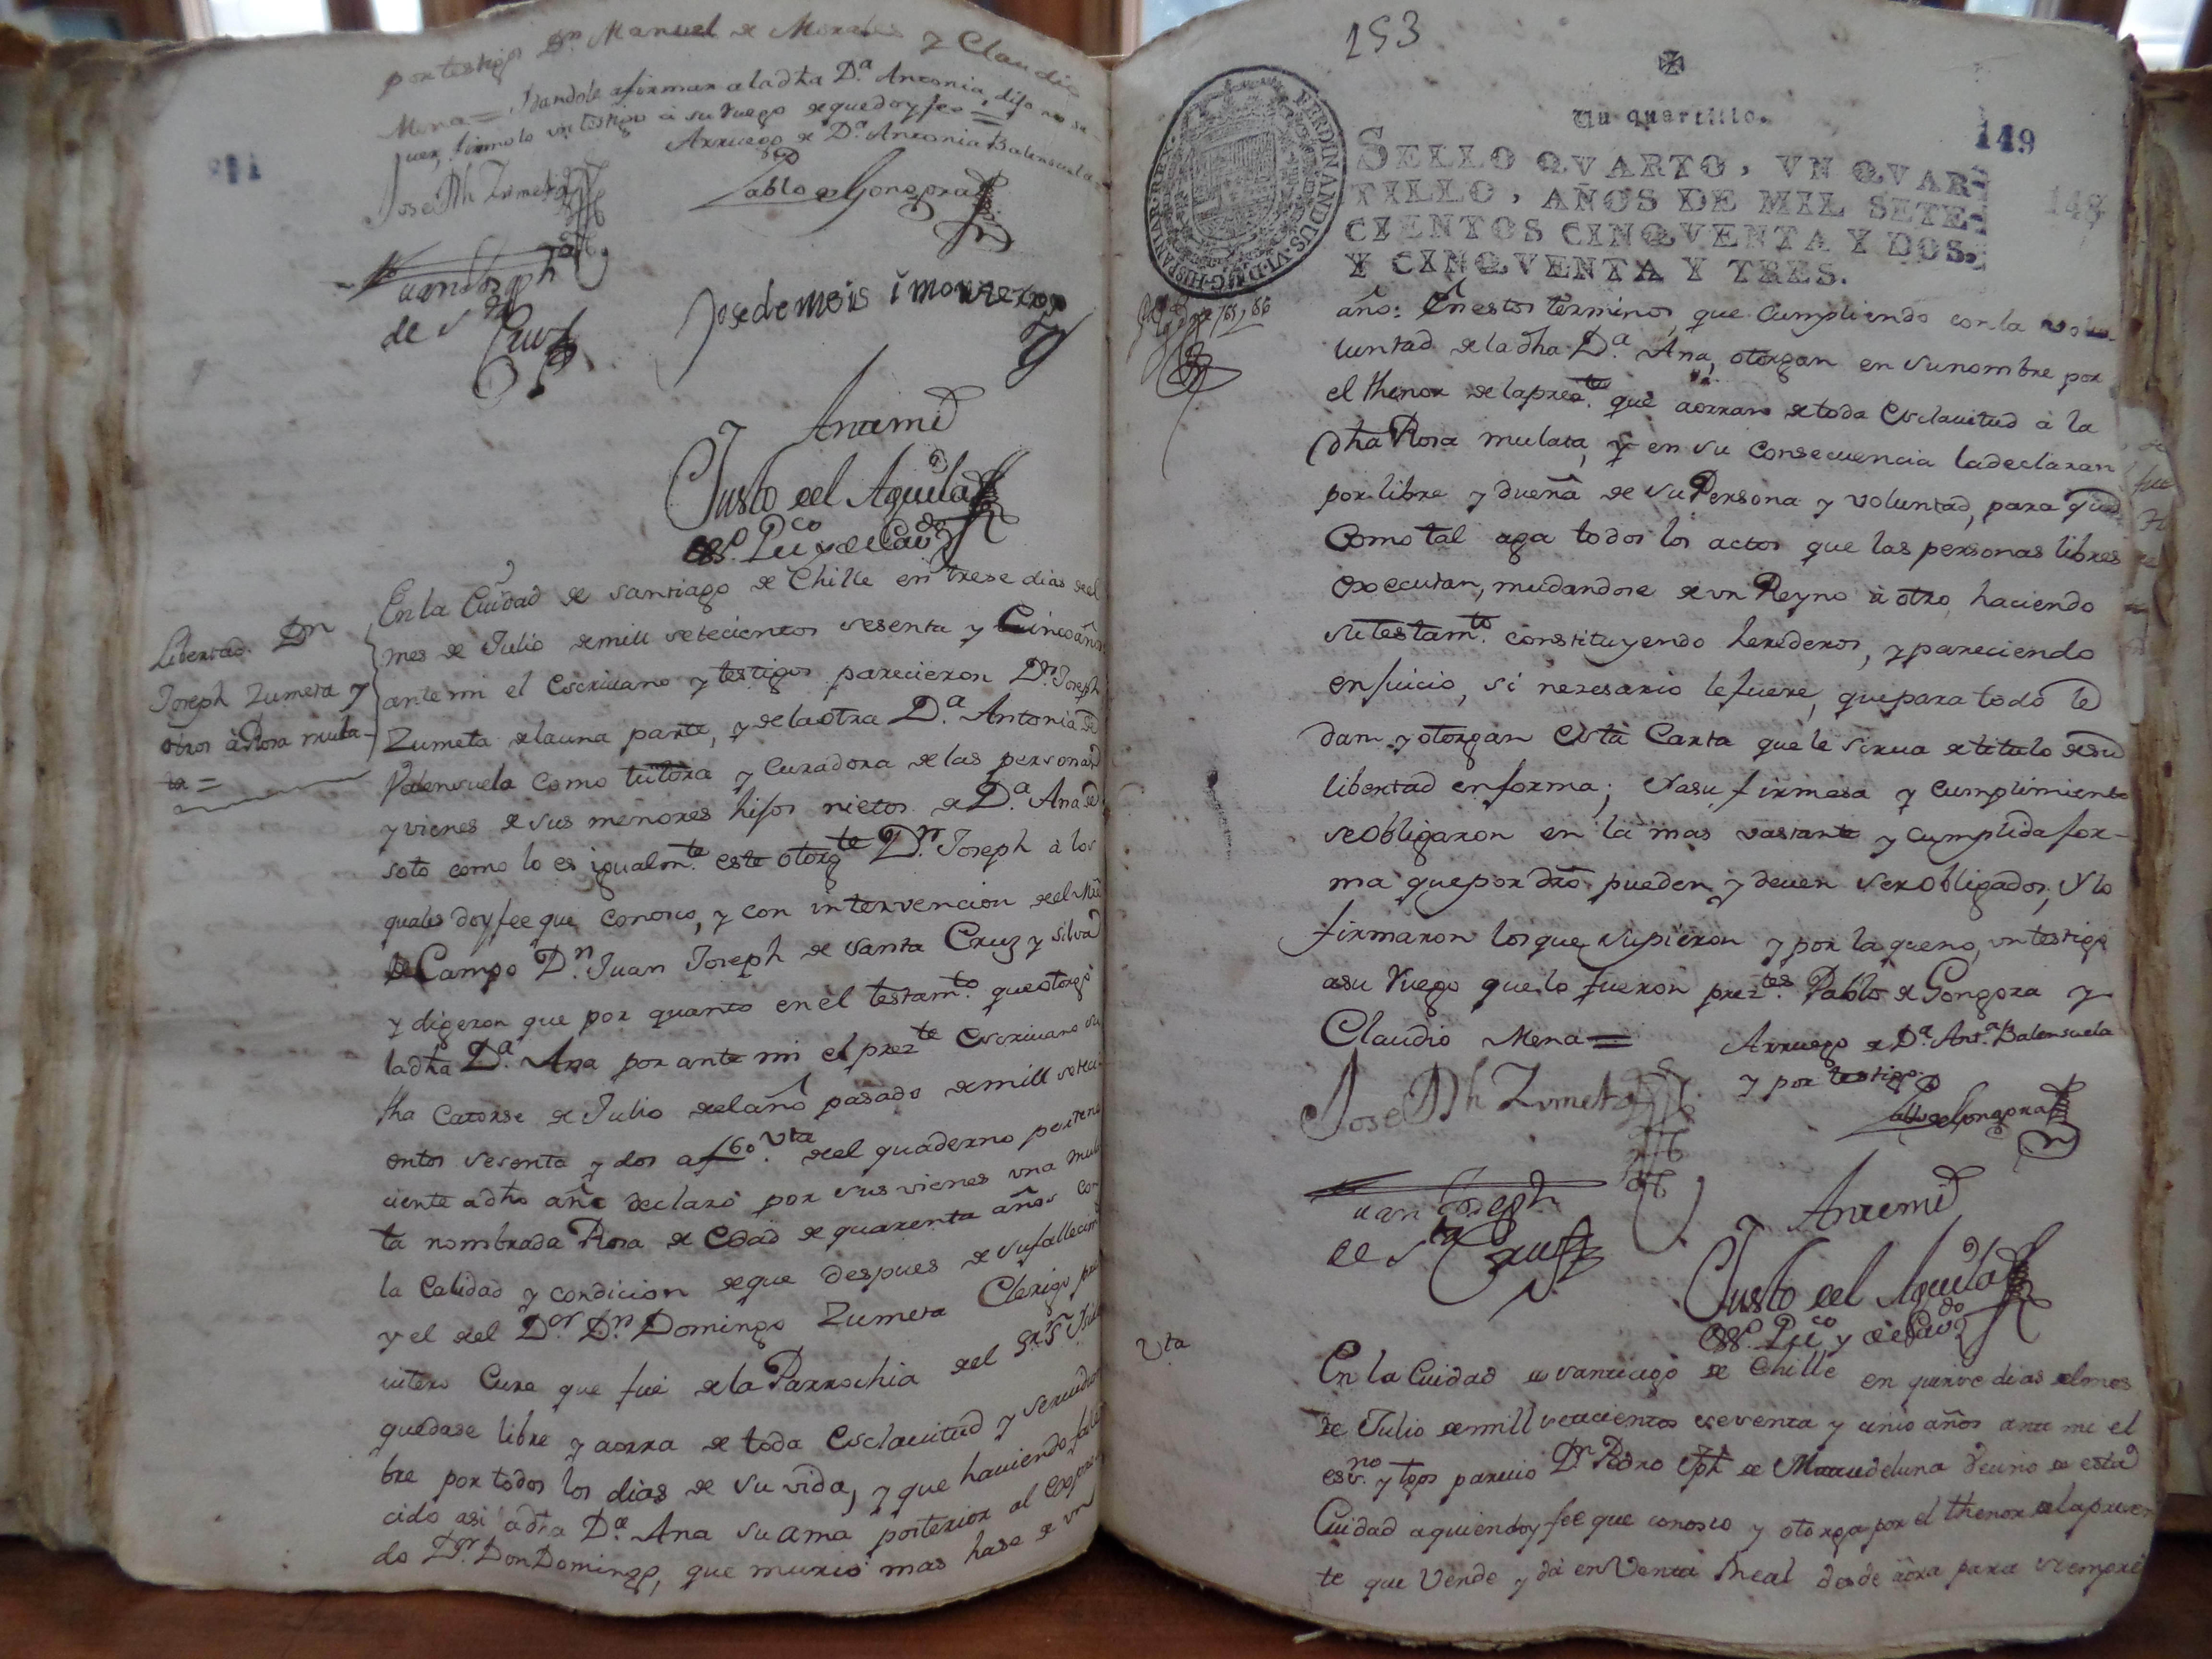 por testigos Dn. Manuel de Morales y Claudio
Mena = Idandole afirmar a la dha Da. Antonia, dijo no sa-
uer, firmolo vn testigo a su ruego de que doy fee =
Arruego de Da. Antonia Balensuela
Joseph Zumeta
Pablo de Gongora
Juan Joseph
de Sta Cruz
Jose de mois i monrreros
Antemi
Justo del Aguila
Essno. Puco y de Cavdo
Libertad. Dn
Joseph Zumeta y
otros à Rosa mula-
ta =
En la Ciudad de Santiago de Chille en trese dias del
mes de Julio de mill setecientos sesenta y Cinco años
ante mi el Escriuano y testigos parecieron Dn. Joseph
Zumeta de la una parte, y de la otra Da. Antonia de
Valensuela como tutora y Curadora de las personas
y vienes de sus menores hijos nietos de Da. Ana de
soto como lo es igualmte. este otorgte Dn. Joseph a los
quales doy fee que conosco, y con intervencion del Mre
de Campo Dn. Juan Joseph de Santa Cruz y Silva
y digeron que por quanto en el testamto. que otorgó
la dha Da. Ana por ante mi el preste Escriuano su
fha Catorse de Julio del año pasado de mill seteci-
entos sesenta y dos a f 60 vta. del quaderno pertene
ciente a dho año declaró por sus vienes una mula
ta nombrada Rosa de edad de quarenta años con
la Calidad y condicion de que despues de su fallecimto
y el del Dor. Dn. Domingo Zumeta Clerigo pres
vitero Cura que fue de la Parrochia del Sr. Sn Isidro
quedase libre y aorra de toda esclauitud y seruidum
bre por todos los dias de su vida, y que hauiendo falle
cido asi a dha Da. Ana su ama posterior al expresa
do Dr. Don Domingo, que murió mas hase de vn
153
Vn quartillo.
149
148
SELLO QVARTO, VN QVAR-
TILLO, AÑOS DE MIL SETE-
CIENTOS CINQVENTA Y DOS,
Y CINQVENTA Y TRES.
FERDINANDUS.VI.D.G.HISPANIAR.REX
año: En estos terminos, que Cumpliendo con la vo-
luntad de la dha Da. Ana, otorgan en su nombre por
el thenor de la preste. que aorran de toda Esclauitud à la
dha Rosa mulata, y en su Consecuencia la declaran
por libre y dueña de su Persona y voluntad, para que
Como tal aga todos los actos que las personas libres
execcutan, mudandose de vn Reyno à otro haciendo
su testamto. constituyendo herederos, y pareciendo
en juicio, si nesesario le fuere, que para todo le
dan y otorgan esta Carta que le sirua de titulo de su
libertad en forma; Y a su firmesa y cumplimiento
se obligaron en la mas vastante y cumplida for-
ma que por dro pueden y deuen ser obligados; Y lo
firmaron los que supieron y por la que no, vn testigo
a su ruego que lo fueron preztes. Pablo de Gongora y
Claudio Mena =
Arruego de Da. Anta. Balensuela
y por testigo
Joseph Zumeta
Pablo de Gongora
Juan Joseph
de Sta Cruz
Antemi
Justo del Aguila
Essno. Puco y de Cavdo
Vta
En la Ciudad de Santiago de Chille en quinse dias del mes
de Julio de mill setecientos sesenta y cinco años ante mi el
esno. y tgos parecio Dn Pedro Jph de Maudeluna vecino de esta
Ciudad a quien doy fee que conosco y otorga por el thenor de la presen
te que Vende y da en Venta Real desde aora para siempre